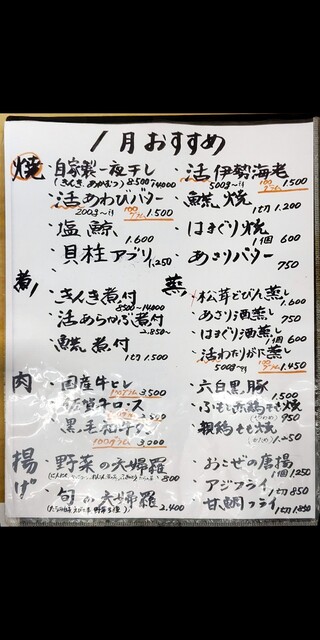 1月おすすめ
焼
・自家製一夜干し
(きんき、あかむつ) 8500~14000
・活あわびバター
200g~ 100グラム 1.500
・塩鯨
1.600
・貝柱アブリ 1,250
・活伊勢海老
500g~ 100グラム 1.500
・鯨焼
1切 1.200
・はまぐり焼
1個 600
・あさりバター
750
煮
・きんき煮付
8500~14000
・活あらかぶ煮付
2.850~
・煮付
1切 1.500
蒸
・松茸どびん蒸し
1.600
・あさり酒蒸し
750
・はまぐり酒蒸し
1個 600
・活わたりがに蒸し
500g~ 100グラム 1.450
肉
・国産牛ヒレ
100グラム 3,000
・佐賀牛ロース
・黒毛和牛
100グラム
・六白黒豚
1.500
・ふもと赤鶏もも焼
950
・親鶏もも焼
1.250
揚げ
・野菜の天婦羅
800
・旬の天婦羅
2.400
・おこぜの唐揚
1個 1,250
・アジフライ
1切 850
・甘鯛フライ